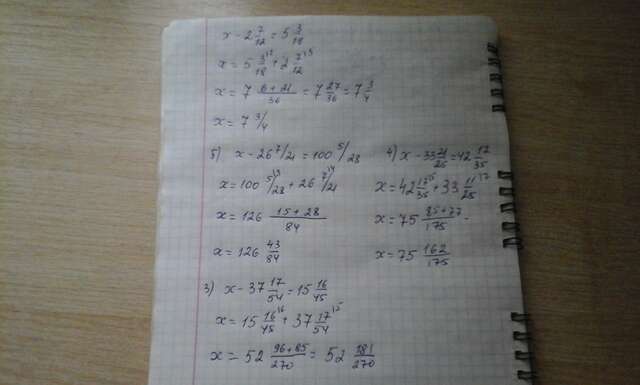 x - 2 7/12 = 5 3/18
x = 5 3/18 + 2 7/12
x = 7 6+21/36 = 7 27/36 = 7 3/4
x = 7 3/4
5) x - 26 7/21 = 100 5/28
x = 100 5/28 + 26 7/21
x = 126 15+28/84
x = 126 43/84
4) x - 33 11/25 = 42 17/35
x = 42 17/35 + 33 11/25
x = 75 85+77/175
x = 75 162/175
3) x - 37 17/54 = 15 16/45
x = 15 16/45 + 37 17/54
x = 52 96+85/270 = 52 181/270